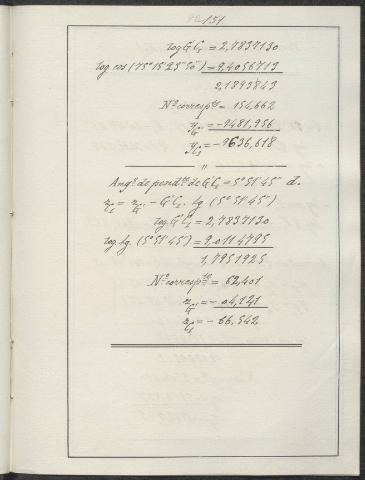 151
log G'C₁ = 2,7837130
log cos (75°15'25"50"') = 9,4056713
2,1893843
Nº corresp.te = 154,662
y G' = -9481,956
y C₁ = -9636,618
"
Ang.º de pend.te de G'C₁ = 5°51'45" d.
z C₁ = z G' - G'C₁. tg (5°51'45")
log G'C₁ = 2,7837130
log tg. (5°51'45") = 9,0114795
1,7951925
Nº corresp.te = 62,401
z G' = - 04,141
z C₁ = - 66,542